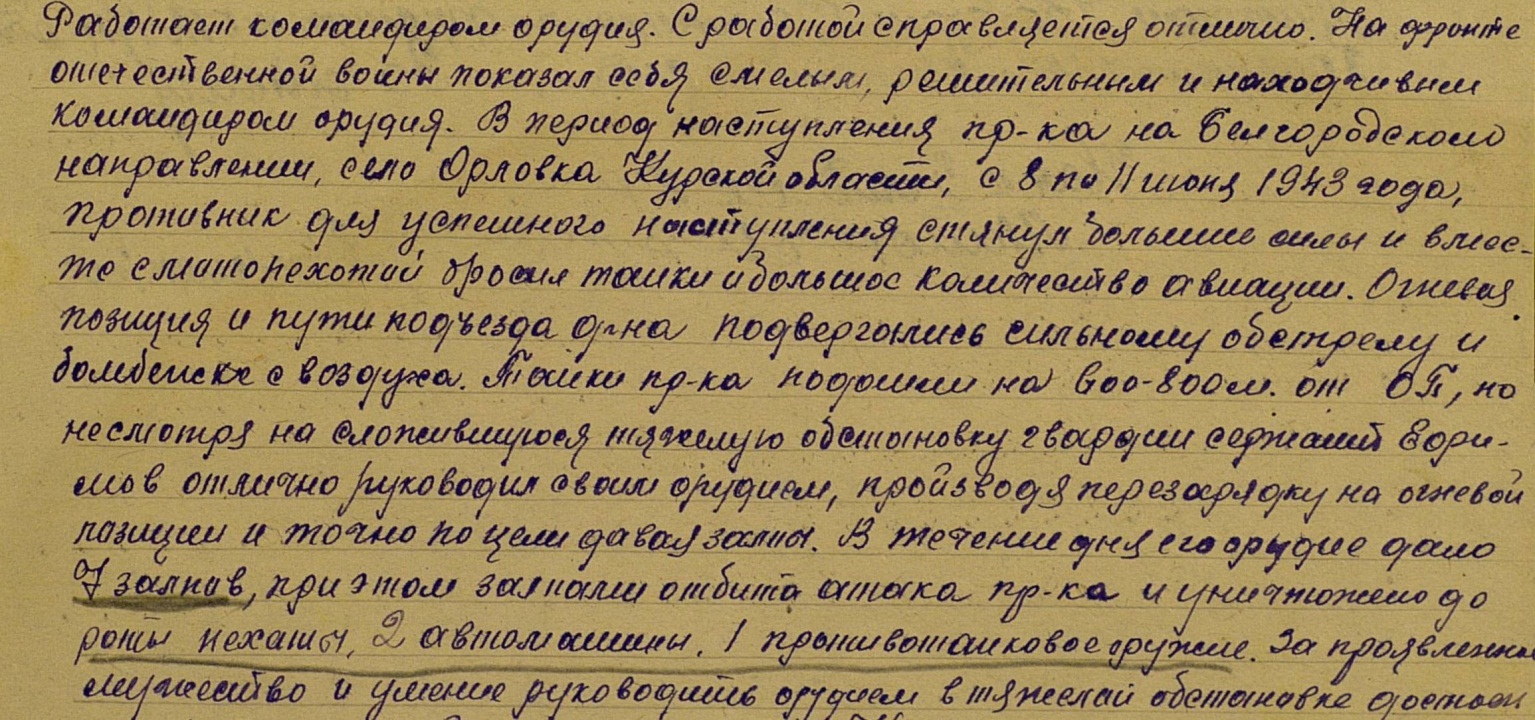 Работает командиром орудия. С работой справляется отлично. На фронте
отечественной войны показал себя смелым, решительным и находчивым
командиром орудия. В период наступления пр-ка на Белгородском
направлении, село Орловка Курской области, с 8 по 11 июня 1943 года,
противник для успешного наступления стянул большие силы и вмес-
те с мотопехотой бросил танки и большое количество авиации. Огневая
позиция и пути подъезда д-на подвергались сильному обстрелу и
бомбёжке с воздуха. Танки пр-ка подошли на 600-800м. от ОП, но
несмотря на сложившуюся тяжелую обстановку гвардии сержант
отлично руководил своим орудием, производя перезарядку на огневой
позиции и точно по цели давая залпы. В течении дня его орудие дало
7 залпов, при этом залпами отбита атака пр-ка и уничтожено до
роты пехоты, 2 автомашины, 1 противотанковое оружие. За проявленное
мужество и умение руководить орудием в тяжелой обстановке достоин